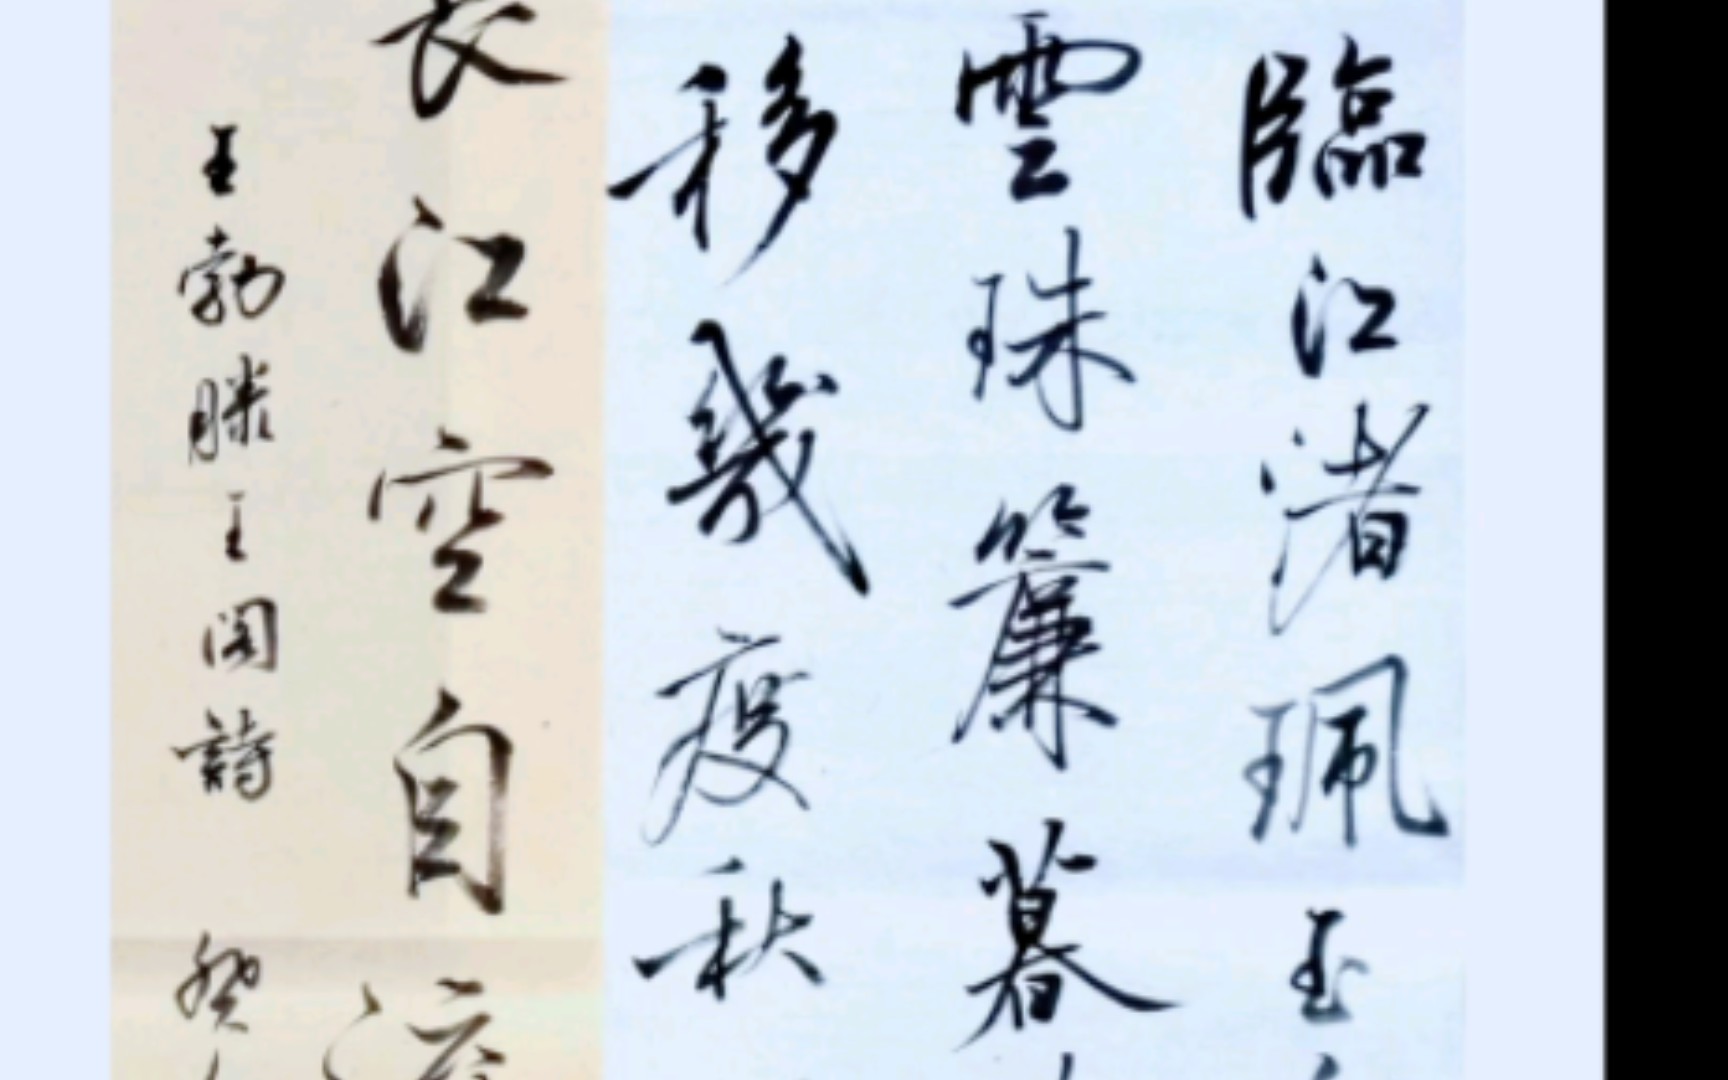 臨江渚珮玉
雲珠簾暮
移幾度秋
長江空自流
王勃滕王閣詩 癸